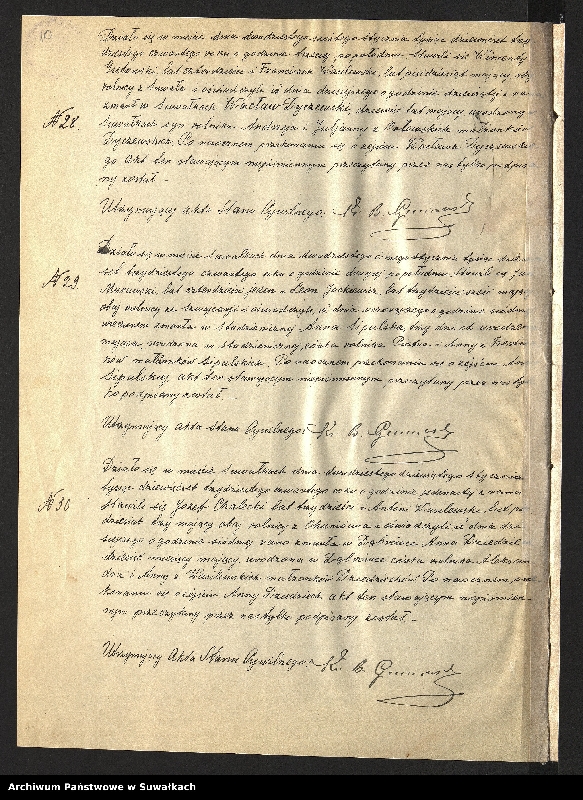 Działo się w mieście dnia dwudziestego szóstego stycznia tysiąc dziewięćset trzy
dziestego czwartego roku o godzinie trzeciej popołudniu. Stawili się Wincenty
lat czterdzieści i Franciszek Wasilewski, lat pięćdziesiąt mający, oby
rolnicy z Suwałk i oświadczyli iż dnia dzisiejszego o godzinie
zmarł w Suwałkach Wacław Dyczewski, lat mający urodzony
w Suwałkach syn rolnika Andrzeja i Julijanny z małżonków
Dyczewskich. Po naocznem przekonaniu się o zejściu Wacława Dyczewskie
go Akt ten stawającym niepiśmiennym przeczytany przez nas tylko podpisa
ny został.
№ 28
Utrzymujący akta Stanu Cywilnego Ks. B.
Działo się w mieście Suwałkach dnia dwudziestego stycznia tysiąc dziewięć
set trzydziestego czwartego roku o godzinie drugiej popołudniu. Stawili się
lat czterdzieści jeden i Leon Jackiewicz, lat trzydzieści sześć mający
obaj rolnicy ze Studzienicznej i oświadczyli, iż dnia wczorajszego o godzinie siódmej
wieczorem zmarła w Studzienicznej Anna Sipulska, trzy dni od urodzenia
mająca urodzona w Studzienicznej, córka rolnika i Anny z
małżonków Sipulskich. Po naocznem przekonaniu się o zejściu Anny
Sipulskiej akt ten stawającym niepiśmiennym przeczytany przez nas tyl
ko podpisany został.
№ 29.
Utrzymujący Akta Stanu Cywilnego Ks. B.
Działo się w mieście Suwałkach dnia dwudziestego dziewiątego stycznia
tysiąc dziewięćset trzydziestego czwartego roku o godzinie jedenastej z rana
Stawili się Józef Chalecki lat trzydzieści i Antoni Wasilewski, lat
trzy mający obaj rolnicy z i oświadczyli iż dnia dzi
siejszego o godzinie siódmej rano zmarła w Anna
dziesięć miesięcy mająca, urodzona w córka rolnika Aleksan
dra i Anny z małżonków Po naocznem prze
konaniu się o zejściu Anny akt ten stawającym niepiśmien
nym przeczytany przez nas tylko podpisany został.
№ 30
Utrzymujący Akta Stanu Cywilnego Ks. B.
Archiwum Państwowe w Suwałkach